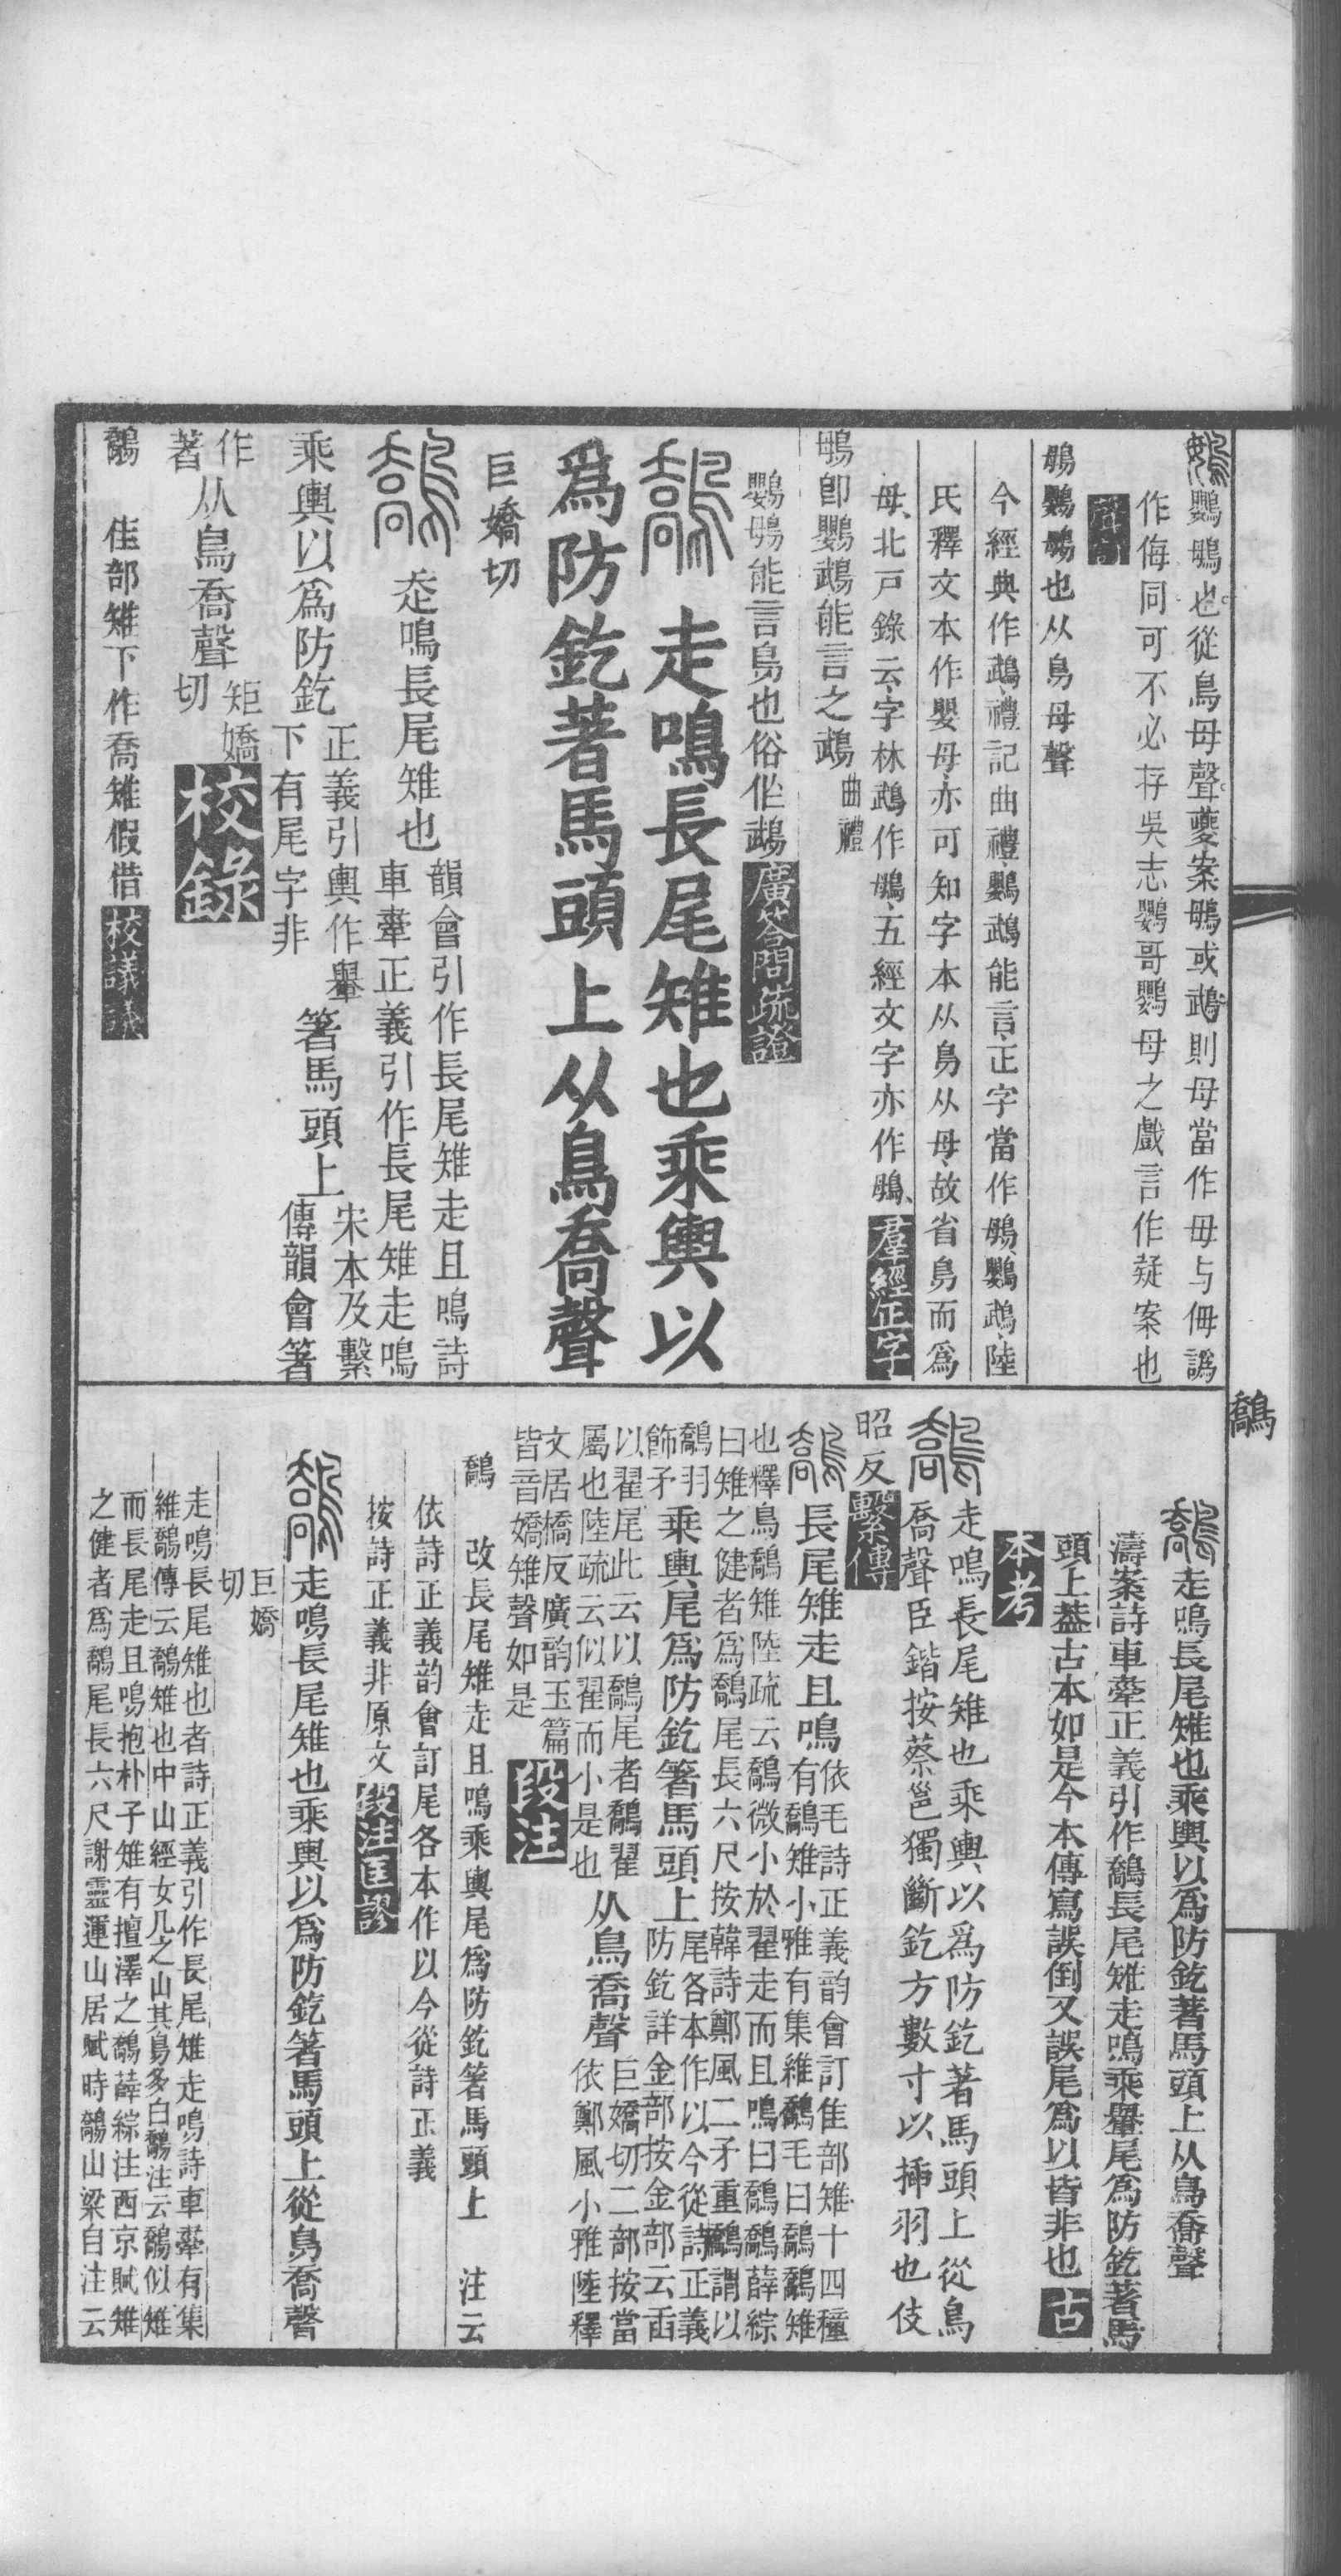 鸚䳇也從鳥母聲夔案䳇或䳇則母當作毋与侮譌
作侮同可不必存吳志鸚哥鸚母之戲言作疑案也
聲訂
䳇鸚䳇也从鳥母聲
今經典作鵡禮記曲禮鸚鵡能言正字當作䳇鸚鵡陸
氏釋文本作嬰母亦可知字本从鳥从母故省鳥而爲
母北戸錄云字林鵡作䳇五經文字亦作䳇羣經正字
䳇卽鸚鵡能言之鵡曲禮
鸚䳇能言鳥也俗作鵡廣答問疏證
走鳴長尾雉也乘輿以
爲防釳著馬頭上从鳥喬聲
巨嬌切
走鳴長尾雉也韻會引作長尾雉走且鳴詩
車舝正義引作長尾雉走鳴
乘輿以爲防釳正義引輿作轝
下有尾字非
箸馬頭上宋本及繫
傳韻會箸
作
著
从鳥喬聲矩嬌
切
校錄
鷮 隹部雉下作喬雉假借校議議
鷮
走鳴長尾雉也乘輿以爲防釳著馬頭上从鳥喬聲
濤案詩車舝正義引作鷮長尾雉走鳴乘轝尾爲防釳著馬
頭上葢古本如是今本傳寫誤倒又誤尾爲以皆非也古
本考
走鳴長尾雉也乘輿以爲防釳著馬頭上從鳥
喬聲臣鍇按蔡邕獨斷釳方數寸以揷羽也伎
昭反繫傳
長尾雉走且鳴依毛詩正義韵會訂隹部雉十四種
有鷮雉小雅有集維鷮毛曰鷮鷮雉
也釋鳥鷮雉陸疏云鷮微小於翟走而且鳴曰鷮鷮薛綜
曰雉之健者爲鷮尾長六尺按韓詩鄭風二矛重鷮謂以
鷮羽
飾矛
乗輿尾爲防釳箸馬頭上尾各本作以今從詩正義
防釳詳金部按金部云臿
以翟尾此云以鷮尾者鷮翟
屬也陸疏云似翟而小是也
从鳥喬聲巨嬌切二部按當
依鄭風小雅陸釋
文居橋反廣韵玉篇
皆音嬌雉聲如是
段注
鷮 改長尾雉走且鳴乘輿尾爲防釳箸馬頭上 注云
依詩正義韵會訂尾各本作以今從詩正義
按詩正義非原文段注匡謬
走鳴長尾雉也乘輿以爲防釳箸馬頭上從鳥喬聲
巨嬌
切
走鳴長尾雉也者詩正義引作長尾雉走鳴詩車舝有集
維鷮傳云鷮雉也中山經女几之山其鳥多白鷮注云鷮似雉
而長尾走且鳴抱朴子雉有擅澤之鷮薛綜注西京賦雉
之健者爲鷮尾長六尺謝靈運山居賦時鷮山梁自注云